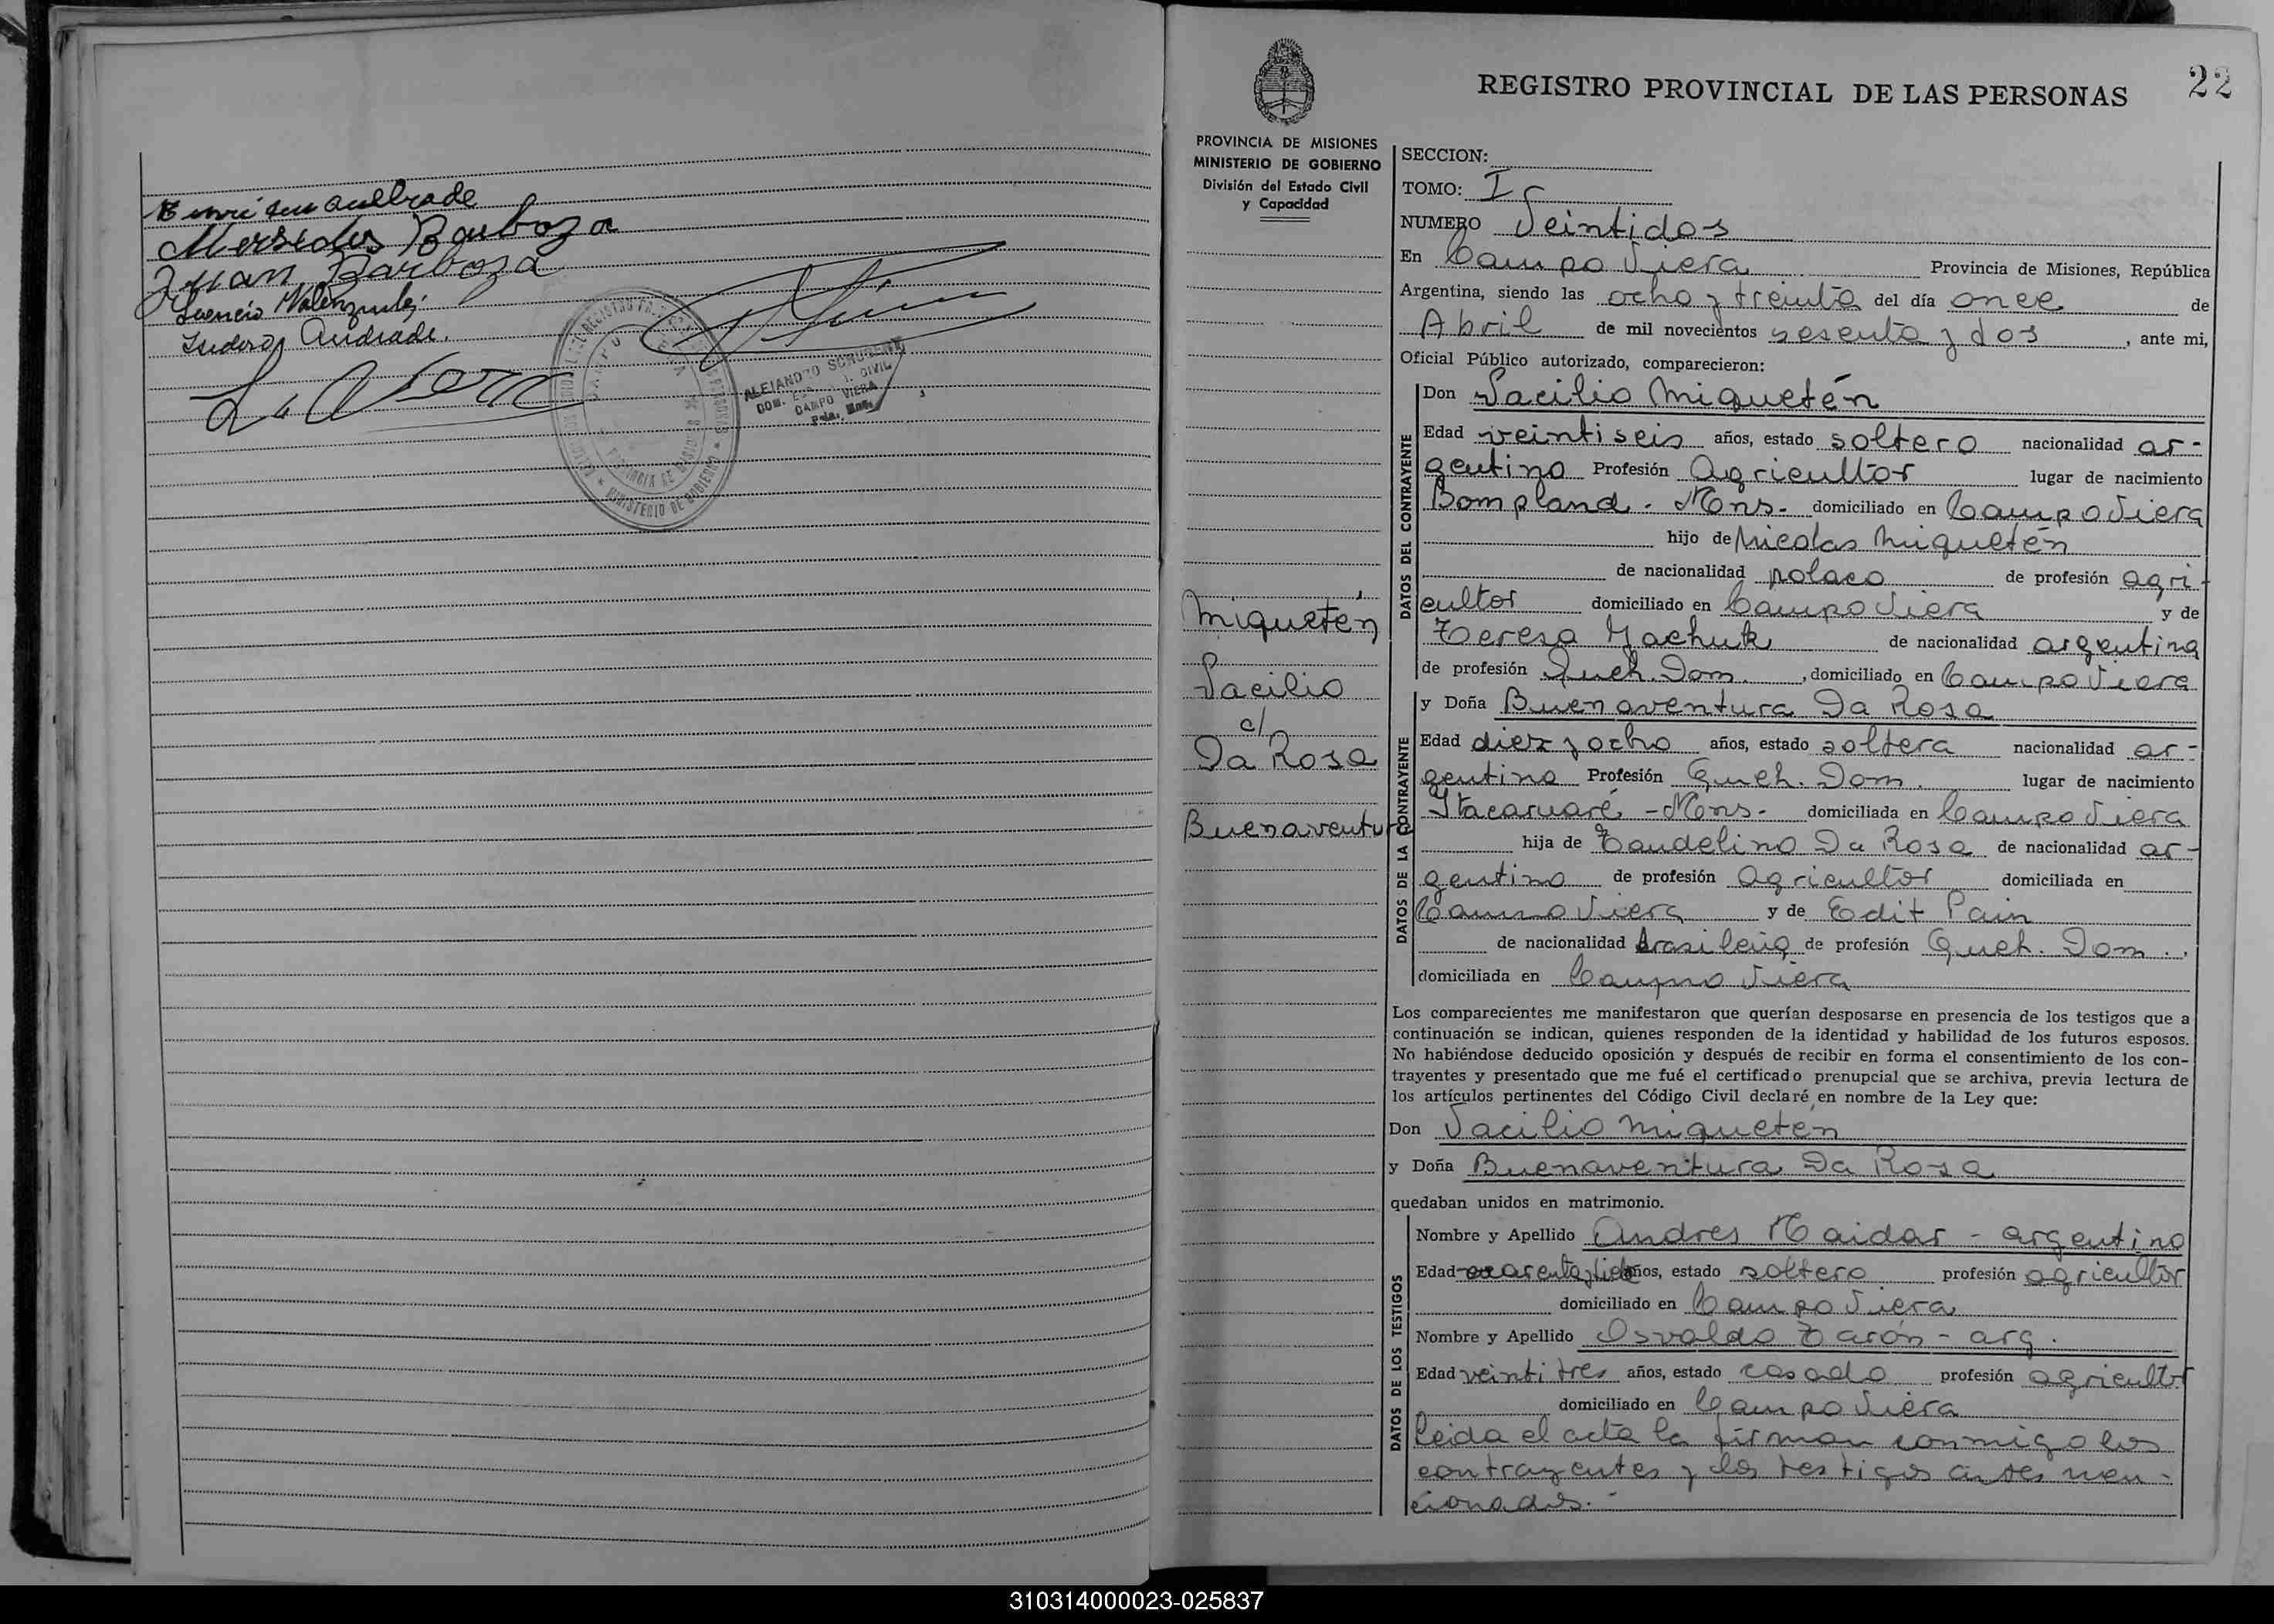 Mersedes Barboza
Juan Barboza
Isidoro Andrade.
ALEJANDRO
CAMPO VIERA
22
REGISTRO PROVINCIAL DE LAS PERSONAS
PROVINCIA DE MISIONES
MINISTERIO DE GOBIERNO
División del Estado Civil
y Capacidad
SECCION:
TOMO: I
NUMERO Veintidos
En Campo Viera Provincia de Misiones, República
Argentina, siendo las ocho y treinta del día once de
Abril de mil novecientos sesenta y dos, ante mi,
Oficial Público autorizado, comparecieron:
DATOS DEL CONTRAYENTE
Don Vacilio Miquetén
Edad veintiseis años, estado soltero nacionalidad ar-
gentino Profesión Agricultor lugar de nacimiento
Bompland - Mns. domiciliado en Campo Viera
hijo de Nicolas Miquetén
de nacionalidad polaco de profesión agri-
cultor domiciliado en Campo Viera y de
Teresa Yachuk de nacionalidad argentina
de profesión Queh. Dom. , domiciliado en Campo Viera
DATOS DE LA CONTRAYENTE
y Doña Buenaventura Da Rosa
Edad diez y ocho años, estado soltera nacionalidad ar-
gentina Profesión Queh. Dom. lugar de nacimiento
Itacaruaré - Mns- domiciliada en Campo Viera
hija de Taudelino Da Rosa de nacionalidad ar-
gentino de profesión Agricultor domiciliada en
Campo Viera y de Edit Pain
de nacionalidad brasileña de profesión Queh. Dom.
domiciliada en Campo Viera
Miquetén
Vacilio
c/
Da Rosa
Buenaventura
Los comparecientes me manifestaron que querían desposarse en presencia de los testigos que a
continuación se indican, quienes responden de la identidad y habilidad de los futuros esposos.
No habiéndose deducido oposición y después de recibir en forma el consentimiento de los con-
trayentes y presentado que me fué el certificado prenupcial que se archiva, previa lectura de
los artículos pertinentes del Código Civil declaré en nombre de la Ley que:
Don Vacilio Miquetén
y Doña Buenaventura Da Rosa
quedaban unidos en matrimonio.
DATOS DE LOS TESTIGOS
Nombre y Apellido Andres Maidar - argentino
Edad años, estado soltero profesión agricultor
domiciliado en Campo Viera
Nombre y Apellido Osvaldo Tarón - arg.
Edad veintitres años, estado casado profesión agricultor
domiciliado en Campo Viera
Leida el acta la firman conmigo los
contrayentes y los testigos antes men-
cionados.-
310314000023-025837